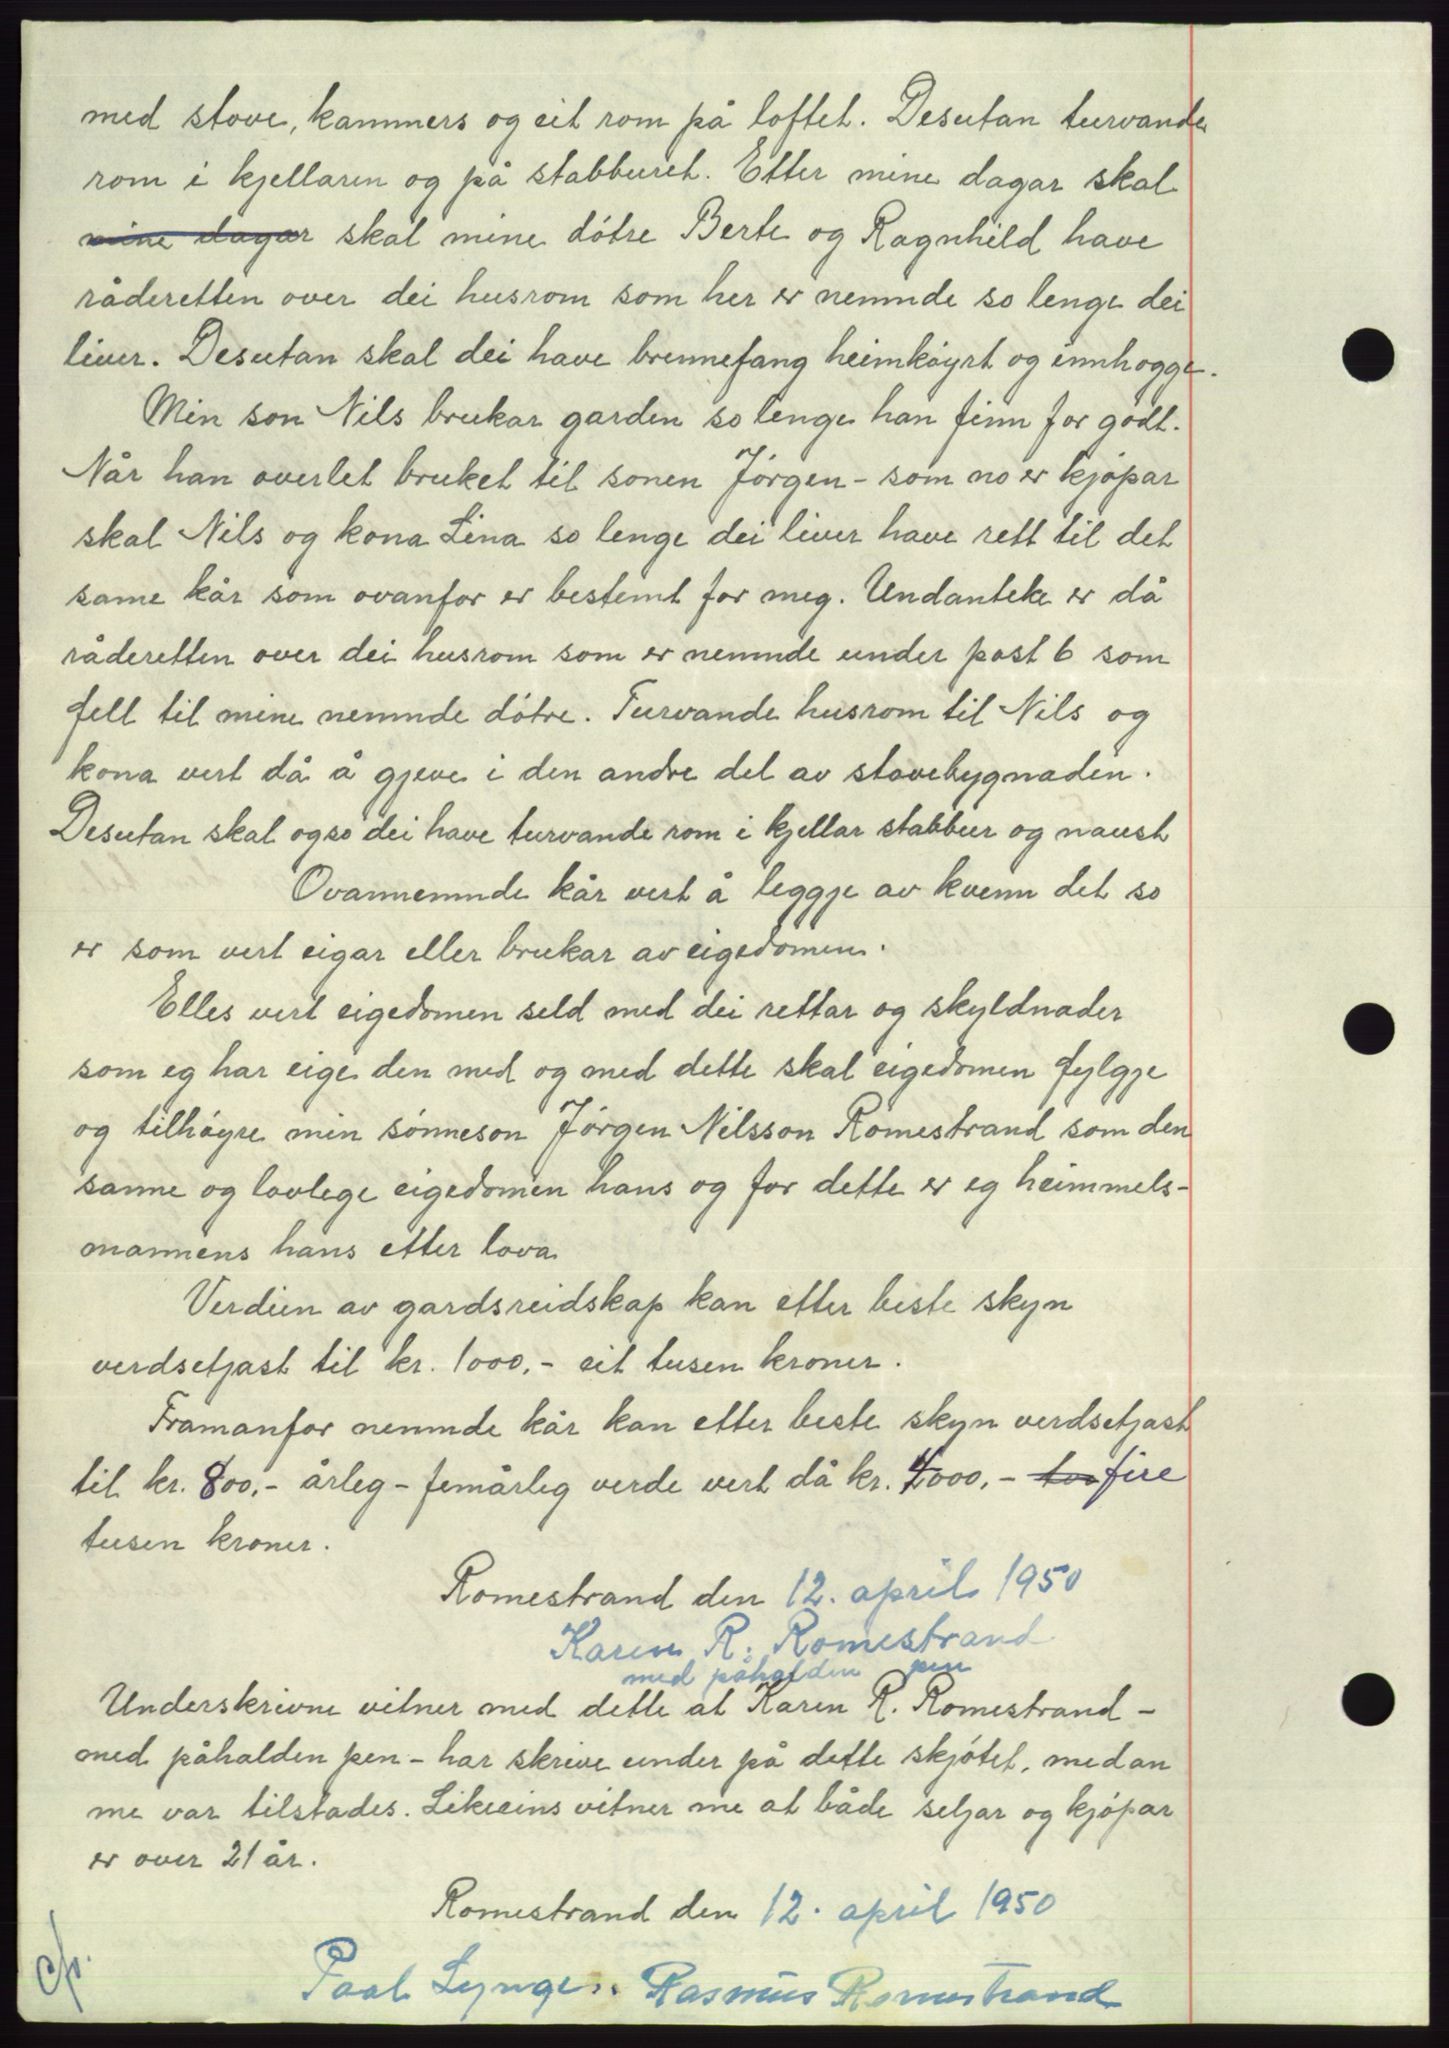 med stove, kammers og eit rom på loftet. Desutan turvande
rom i kjellaren og på stabburet. Etter mine dagar skal
mine dagar skal mine døtre Berte og Ragnhild have
råderetten over dei husrom som her er nemnde so lenge dei
liver. Desutan skal dei have brennefang heimkøyrt og innhogge.
Min son Nils brukar garden so lenge han finn for godt.
Når han overlet bruket til sonen Jørgen - som no er kjøpar
skal Nils og kona Lina so lenge dei liver have rett til det
same kår som ovanfor er bestemt for meg. Undanteke er då
råderetten over dei husrom som er nemnde under post 6 som
fell til mine nemnde døtre. Turvande husrom til Nils og
kona vert då å gjeve i den andre del av stovebygnaden.
Desutan skal ogso dei have turvande rom i kjellar stabbur og naust
Ovannemnde kår vert å leggje av kvenn det so
er som vert eigar eller brukar av eigedomen.
Elles vert eigedomen seld med dei rettar og skyldnader
som eg har eige den med og med dette skal eigedomen fylgje
og tilhøyre min sønneson Jørgen Nilsson Romestrand som den
sanne og lovlege eigedomen hans og for dette er eg heimmels-
mannens hans etter lova
Verdien av gardsreidskap kan etter beste skyn
verdsetjast til kr. 1000,- eit tusen kroner.
Framanfor nemnde kår kan etter beste skyn verdsetjast
til kr. 800,- årleg - femårleg verde vert då kr. 4000,- to fire
tusen kroner.
Romestrand den 12. april 1950
Karen R. Romestrand
med påhalden pen
Underskrivne vitner med dette at Karen R. Romestrand -
med påhalden pen - har skrive under på dette skjøtet, medan
me var tilstades. Likeeins vitner me at både seljar og kjøpar
er over 21 år.
Romestrand den 12. april 1950
Paal Lynge. Rasmus Romestrand